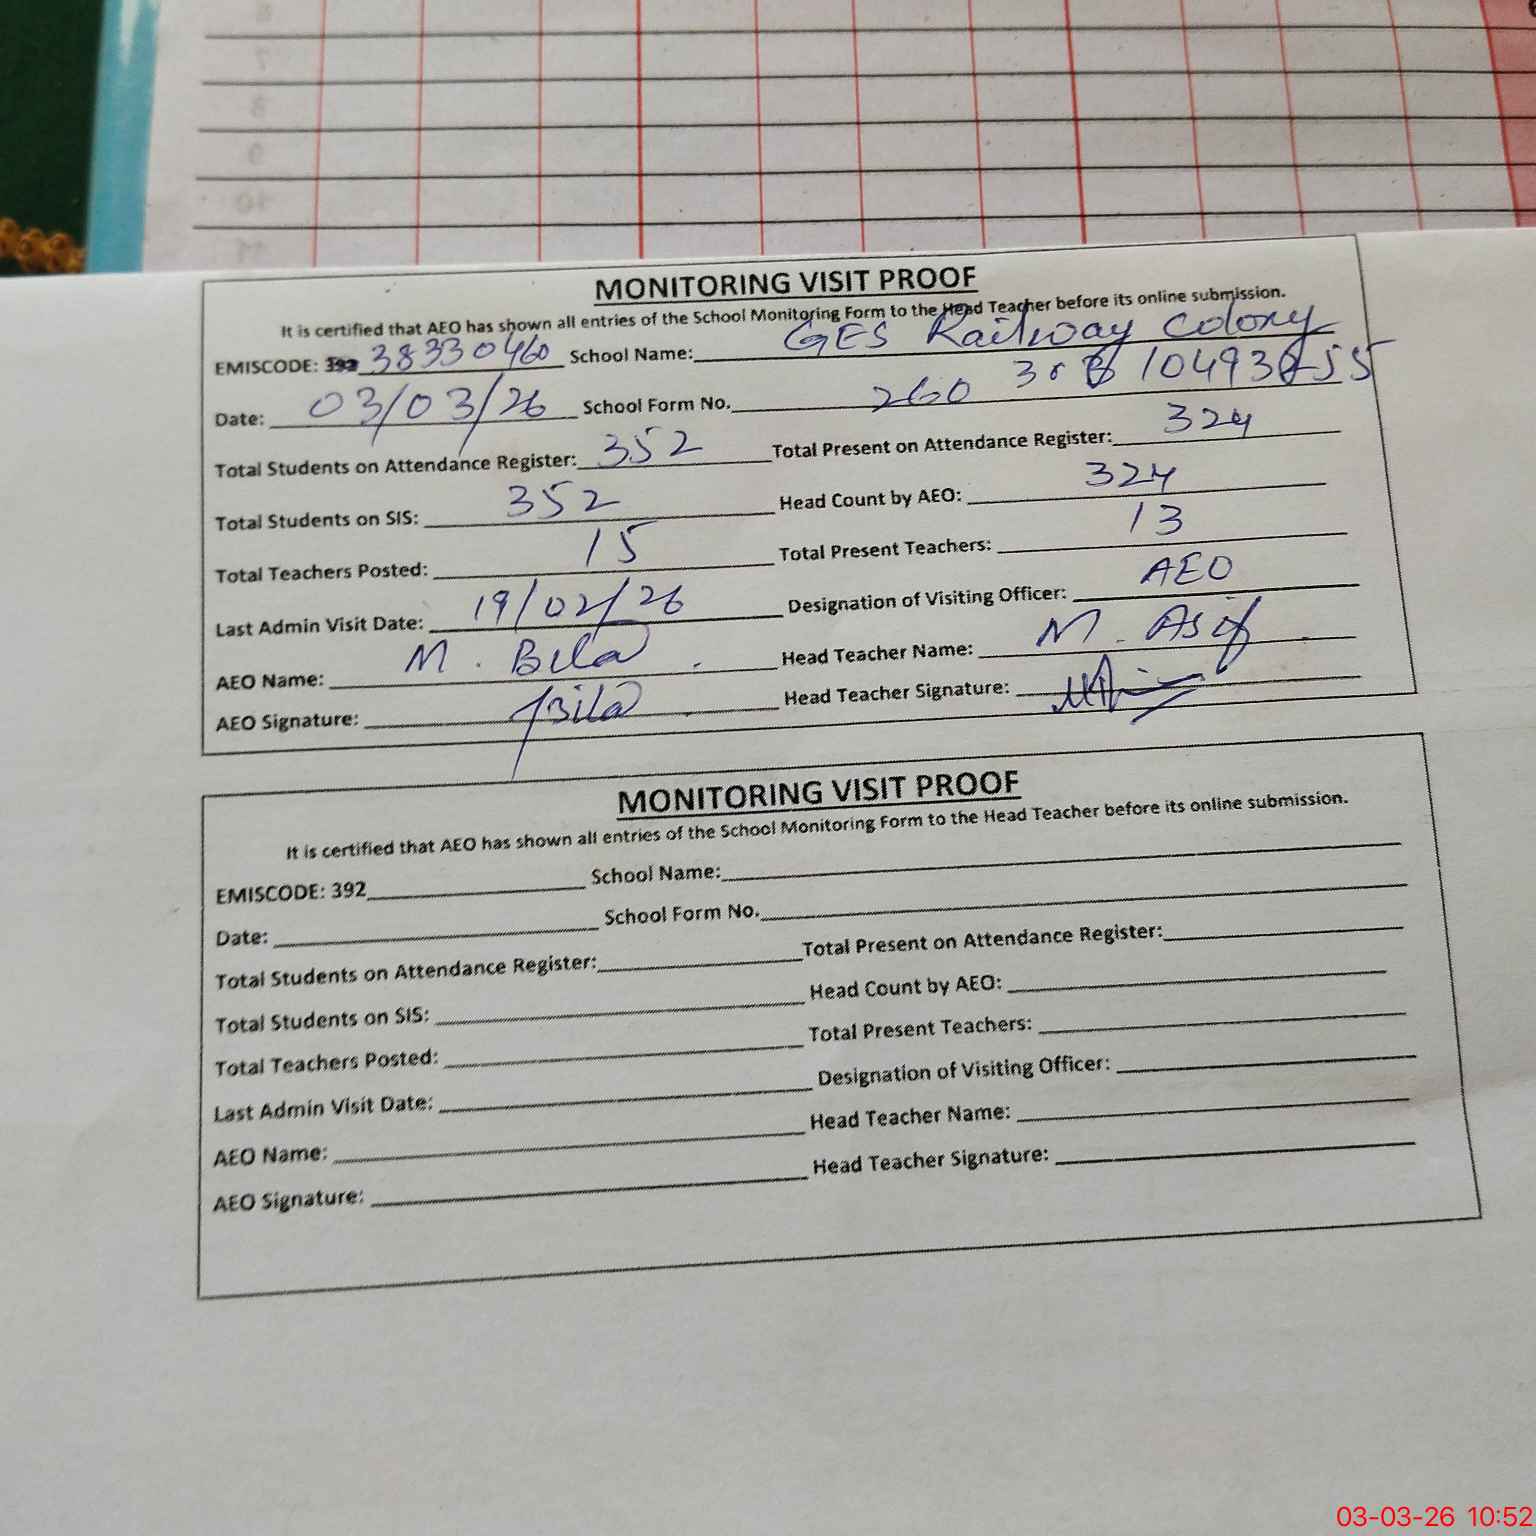 8
7
8
9
10
11
MONITORING VISIT PROOF
It is certified that AEO has shown all entries of the School Monitoring Form to the Head Teacher before its online submission.
EMISCODE: 392 38330460 School Name: GES Railway Colony
Date: 03/03/26 School Form No. 260
Total Students on Attendance Register: 352 Total Present on Attendance Register: 324
Total Students on SIS: 352 Head Count by AEO: 324
Total Teachers Posted: 15 Total Present Teachers: 13
Last Admin Visit Date: 19/02/26 Designation of Visiting Officer: AEO
AEO Name: M. Bilal Head Teacher Name: M. Asif
AEO Signature: Bilal Head Teacher Signature:
MONITORING VISIT PROOF
It is certified that AEO has shown all entries of the School Monitoring Form to the Head Teacher before its online submission.
EMISCODE: 392 School Name:
Date: School Form No.
Total Students on Attendance Register: Total Present on Attendance Register:
Total Students on SIS: Head Count by AEO:
Total Teachers Posted: Total Present Teachers:
Last Admin Visit Date: Designation of Visiting Officer:
AEO Name: Head Teacher Name:
AEO Signature: Head Teacher Signature:
03-03-26 10:52